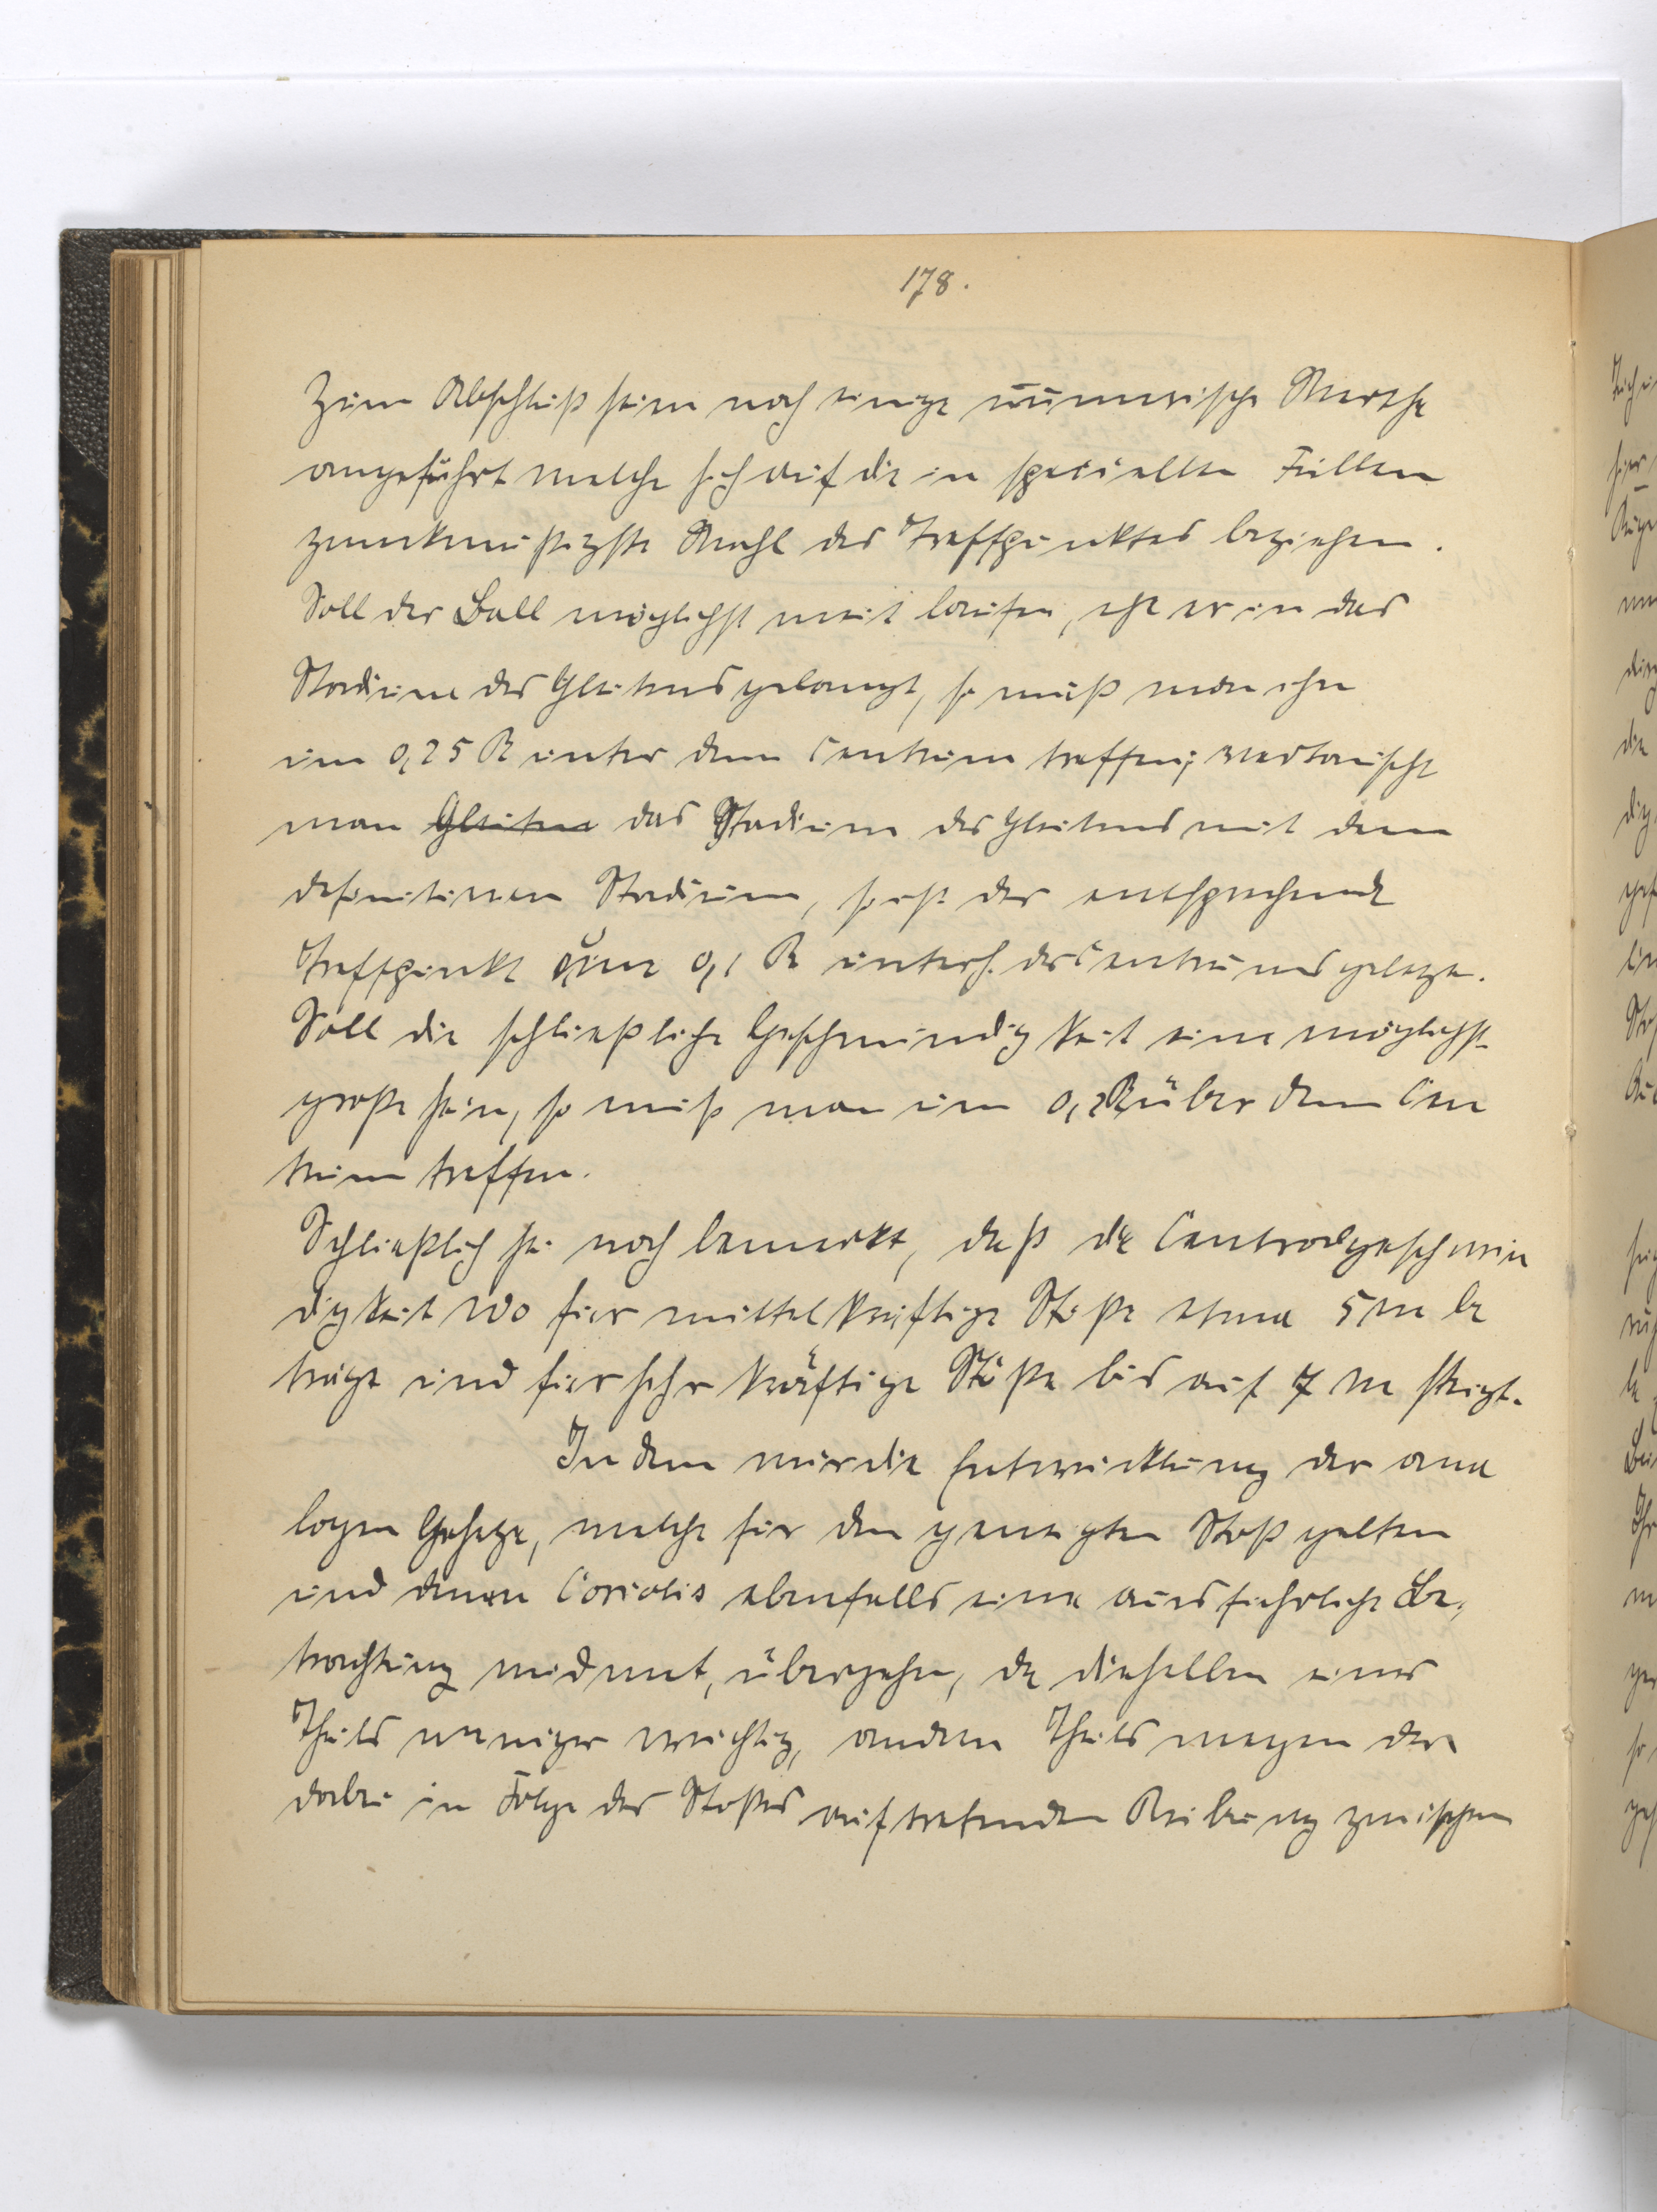 178.
Zum Abschluß seien noch einige numerische Werthe
angeführt welche sich auf die in speciellen Fällen
zweckmäßigste Wahl des Treffpunktes beziehen.
Soll der Ball möglichst weit laufen, ehe er in das
Stadium des Gleitens gelangt, so muß man ihn
um 0,25 R unter dem Centrum treffen; vertauscht
man Gleiten das Stadium des Gleitens mit dem
definitiven Stadium, so ist der entsprechende
Treffpunkt um 0,1 R unterh. des Centrums gelegen.
Soll die schließliche Geschwindigkeit eine möglichst
große sein, so muß man um 0,2R über dem Cen
trum treffen.
Schließlich sei noch bemerkt, daß die Centralgeschwin
digkeit W0 für mittelkräftige Stöße etwa 5 m be
trägt und für sehr kräftige Stöße bis auf 7 m steigt.
In dem wir die Entwicklung der ana
logen Gesetze, welche für den geneigten Stoß gelten
und denen Coriolis ebenfalls eine ausführliche Be,
trachtung widmet, übergehen, da dieselben eines
Theils weniger wichtig, andern Theils wegen der
dabei in Folge des Stoßes auftretenden Reibung zwischen